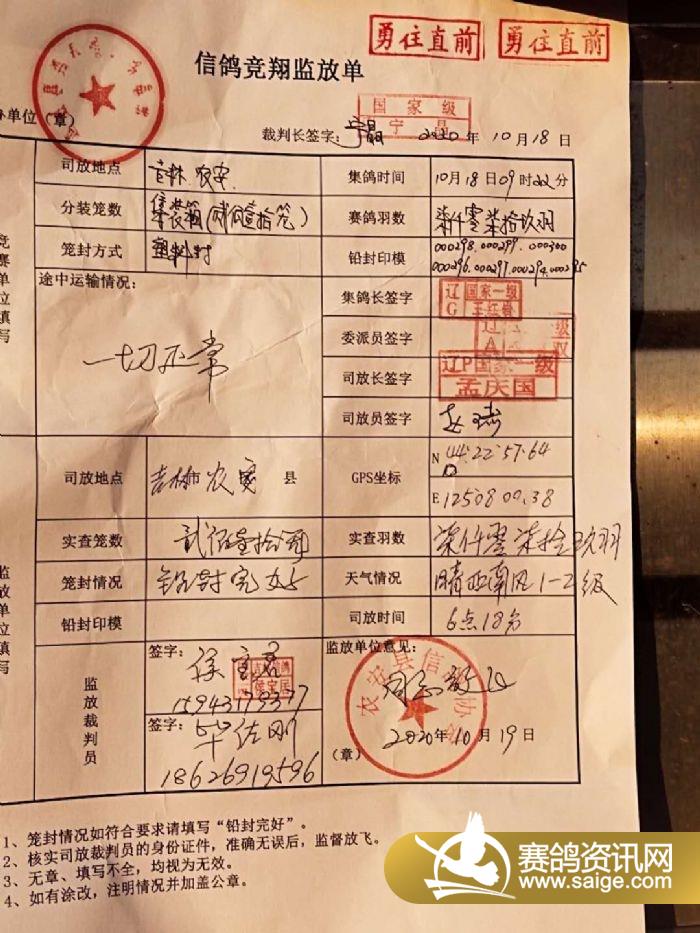 勇往直前 勇往直前
信鸽竞翔监放单
办单位(章)
国家级
宁晶
裁判长签字: 宁晶 2020年10月18日
司放地点 吉林 农安 集鸽时间 10月18日09时22分
分装笼数 集装箱(贰佰壹拾笼) 赛鸽羽数 柒仟零柒拾玖羽
笼封方式 塑料封 铅封印模 000298.000299.000300
000296.000297.000294.000295
途中运输情况: 一切正常
集鸽长签字 辽G 国家一级
委派员签字 辽A
司放长签字 辽P国家一级
孟庆国
司放员签字
司放地点 吉林 农安 县 GPS坐标 N 44:22:57.64
E 125:08 00.38
实查笼数 贰佰壹拾 实查羽数 柒仟零柒拾玖羽
笼封情况 铅封完好 天气情况 晴西南风1-2级
铅封印模 司放时间 6点18分
监放裁判员
签字: 侯宝居
侯宝居
15943179377
签字: 毕佐刚
18626919596
监放单位意见:
同意放飞
农安县信鸽协会
(章) 2020年10月19日
1、笼封情况如符合要求请填写“铅封完好”。
2、核实司放裁判员的身份证件,准确无误后,监督放飞。
3、无章、填写不全,均视为无效。
4、如有涂改,注明情况并加盖公章。
赛鸽资讯网
www.saige.com